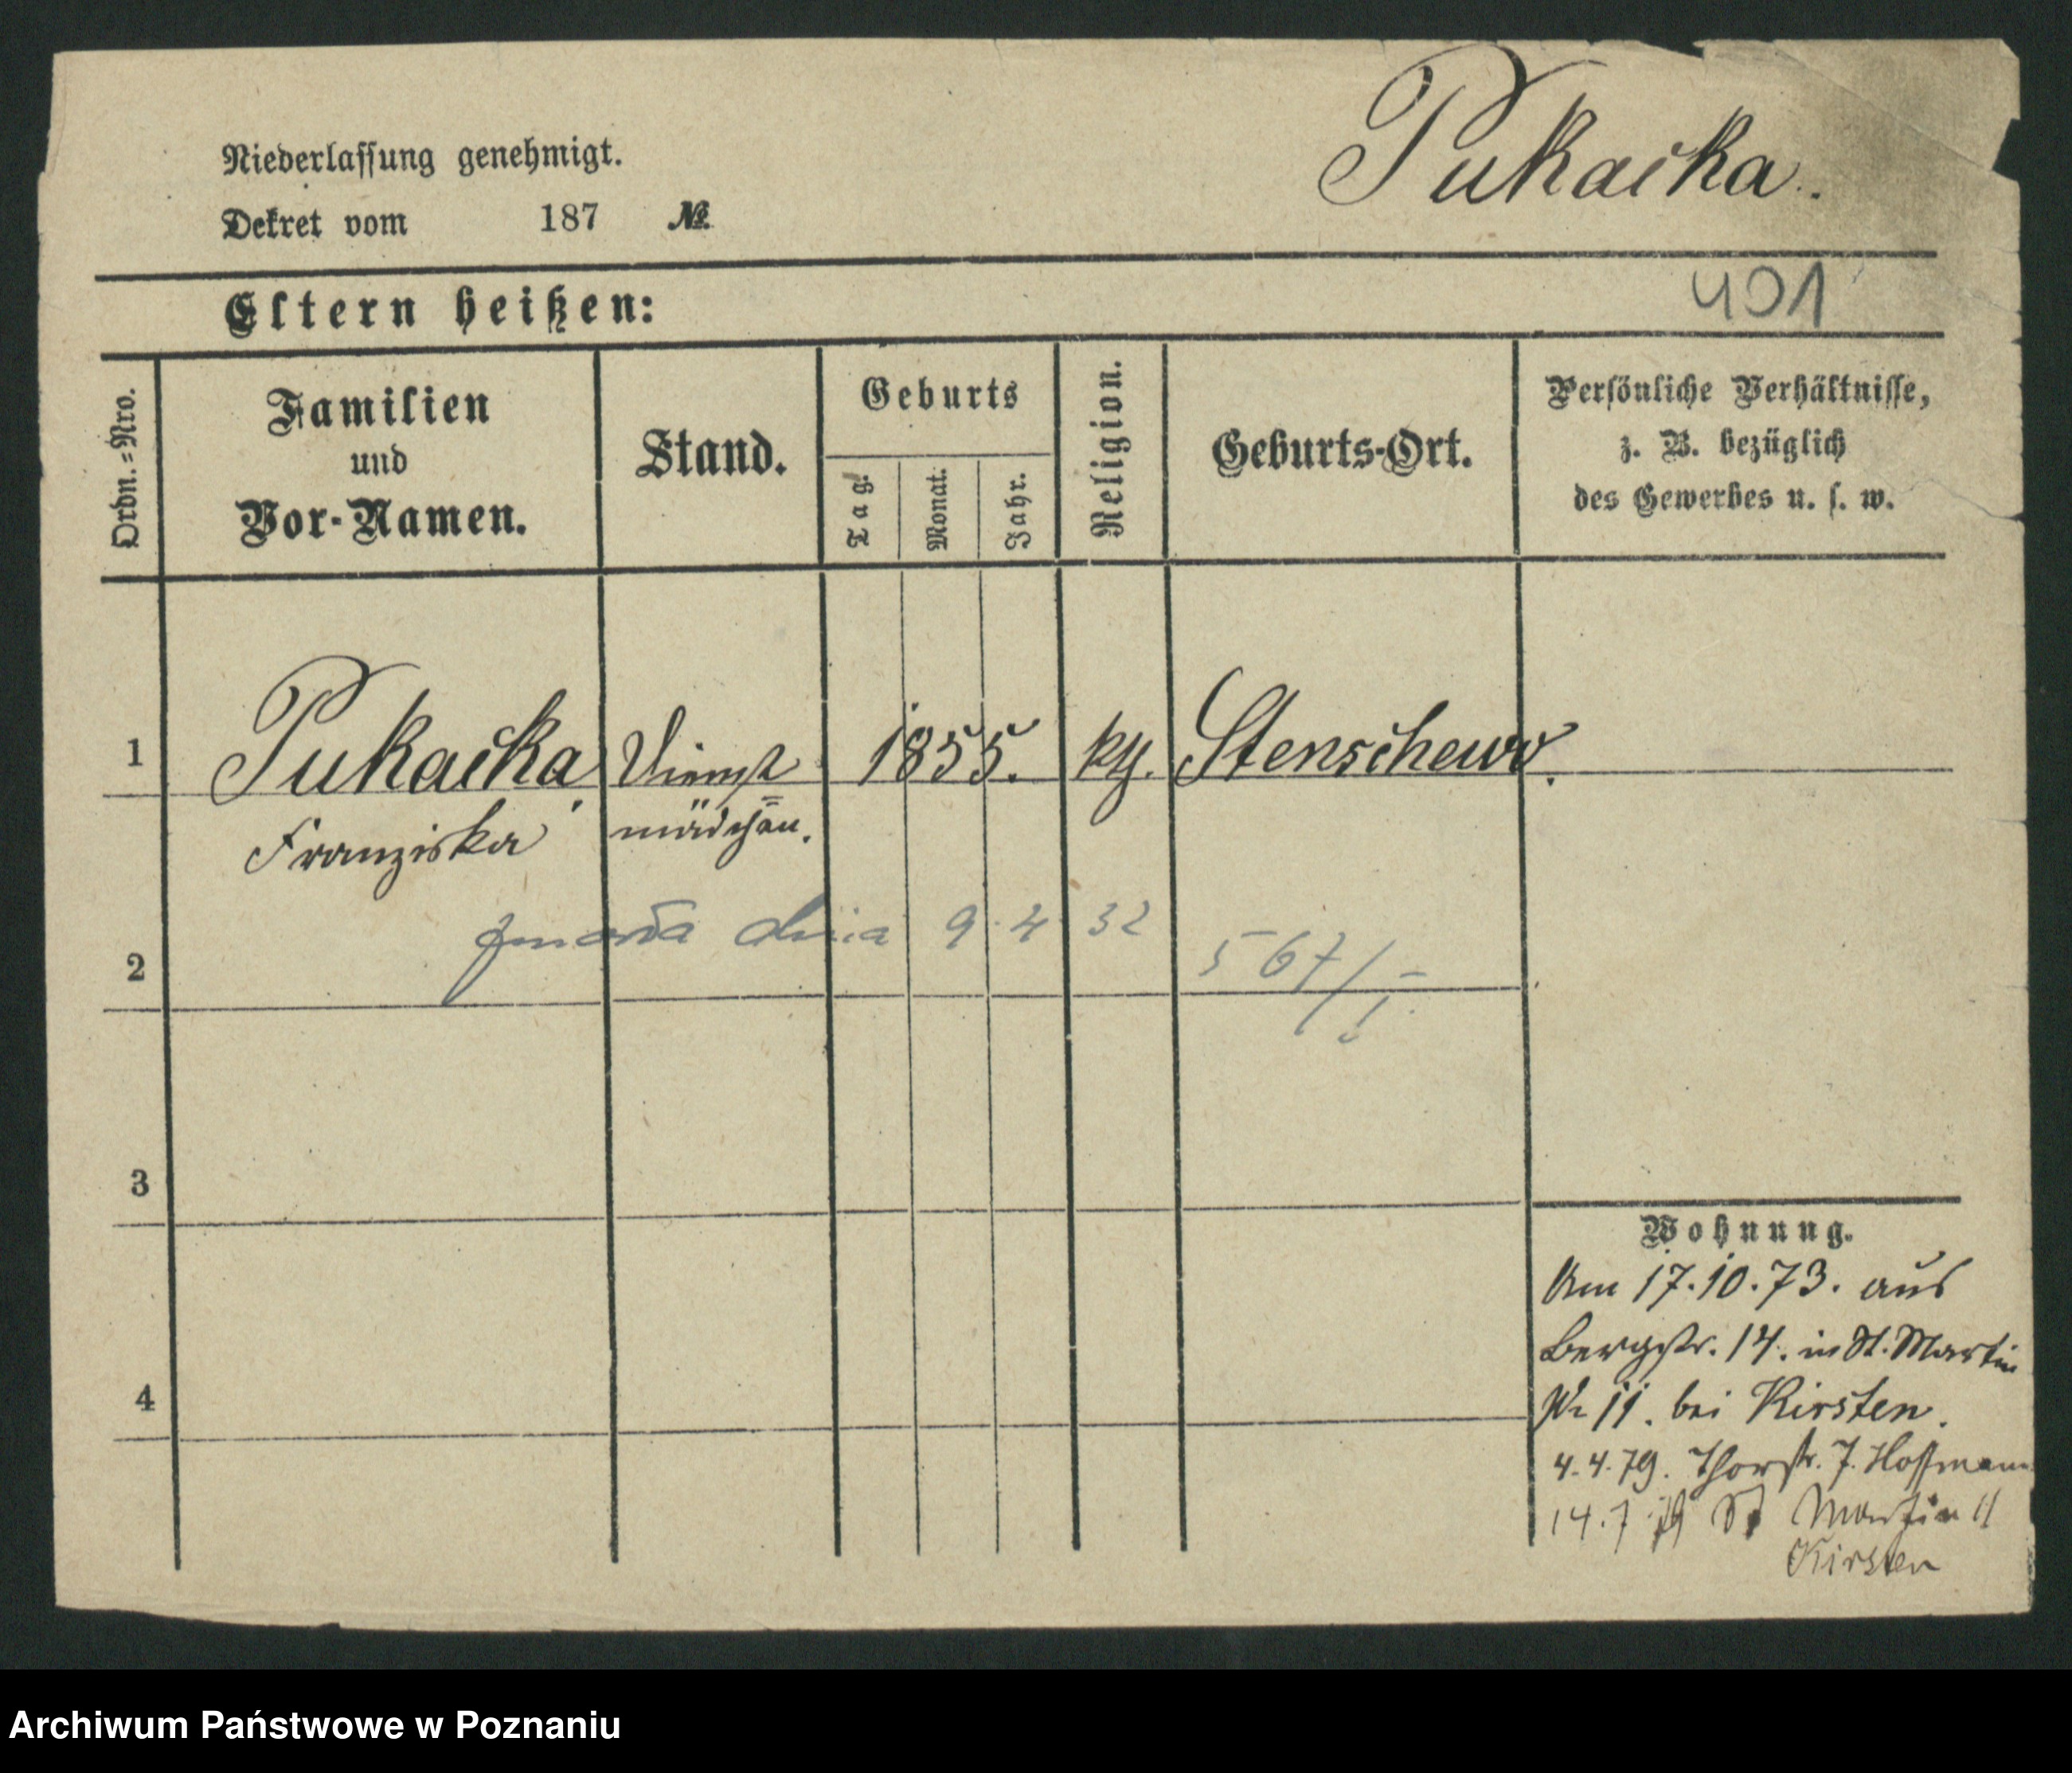 Pukacka.
Niederlassung genehmigt.
Dekret vom 187 №.
401
Eltern heißen:
Ordn.=Nro.
Familien
und
Vor-Namen.
Stand.
Geburts
Tag.
Monat.
Jahr.
Religion.
Geburts-Ort.
Persönliche Verhältnisse,
z. B. bezüglich
des Gewerbes u. s. w.
1 Pukacka, Dienst= 1855. Stenschewo.
Franziska mädchen.
zmarła dnia 9.4.32 567/I
2
3
4
Wohnung.
Am 17.10.73. aus
Bergstr. 14. in St. Martin
Nr 11. bei Kirsten.
4.4.79. Thorstr. 7. Hoffmann
14.7 79 St Martin 11
Kirsten
Archiwum Państwowe w Poznaniu